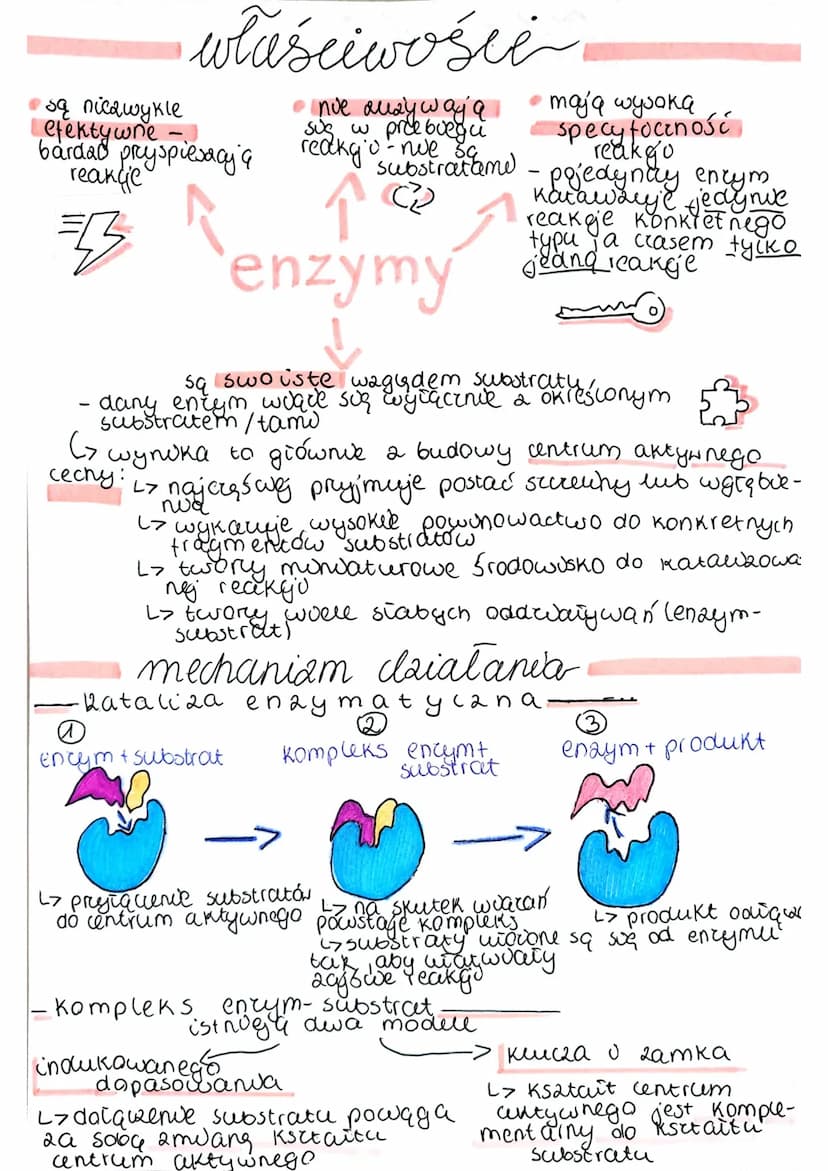 właściwości
są niezwykle
efektywne –
bardzo przyspieszają
reakcję
nie zużywają
się w przebiegu
reakcji - nie są
substratami
mają wysoką
specyficzność
reakcji
- pojedynczy enzym
katalizuje jedynie
reakcje konkretnego
typu, a czasem tylko
jedną reakcję
enzymy
są swoiste względem substratu,
- dany enzym wiąże się wyłącznie z określonym
substratem/tami
↳ wynika to głównie z budowy centrum aktywnego
cechy:
↳ najczęściej przyjmuje postać szczeliny lub wgłębie-
nia
↳ wykazuje wysokie powinowactwo do konkretnych
fragmentów substratów
↳ tworzy miniaturowe środowisko do katalizowa
nej reakcji
↳ tworzy wiele słabych oddziaływań (enzym-
substrat)
mechanizm działania
kataliza enzymatyczna
1
enzym + substrat
2
kompleks enzym+
substrat
3
enzym + produkt
↳ przyłączenie substratów
do centrum aktywnego
↳ na skutek wiązań
powstaje kompleks
↳ substraty ułożone są
tak, aby ułatwiały
zajście reakcji
↳ produkt odłącz
się od enzymu
- kompleks enzym-substrat
istnieją dwa modele
indukowanego
dopasowania
↳ dołączenie substratu pociąga
za sobą zmianę kształtu
centrum aktywnego
klucza i zamka
↳ kształt centrum
aktywnego jest komple-
mentarny do kształtu
substratu